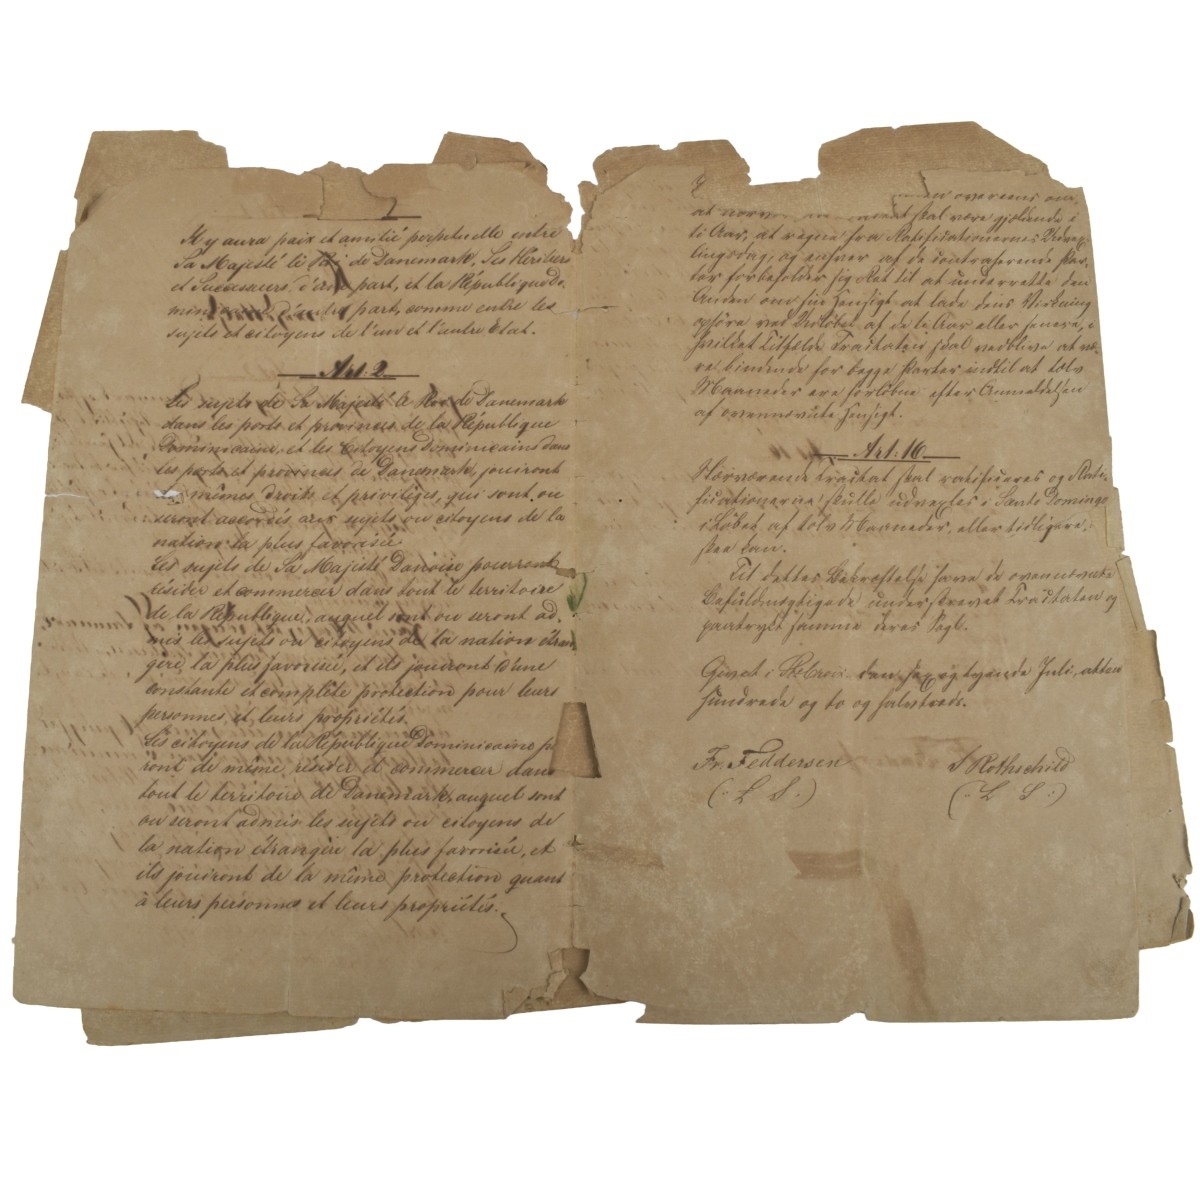 Il y aura paix et amitié perpetuelle entre
Sa Majesté le Roi de Danemark, Ses Héritiers
et Successeurs, d'une part, et la République Do-
minicaine d'autre part, comme entre les
sujets et citoyens de l'un et l'autre Etat.
Art. 2.
Les sujets de Sa Majesté le Roi de Danemark
dans les ports et provinces de la République
Dominicaine, et les citoyens dominicains dans
les ports et provinces de Danemark, jouiront
mêmes droits et privilèges, qui sont ou
seront accordés aux sujets ou citoyens de la
nation la plus favorisée.
Les sujets de Sa Majesté Danoise pourront
résider et commercer dans tout le territoire
de la République, auquel sont ou seront ad-
mis les sujets ou citoyens de la nation étran-
gère, la plus favorisée, et ils jouiront d'une
constante et complète protection pour leurs
personnes et leurs propriétés.
Les citoyens de la République Dominicaine p
ront de même, résider et commercer dans
tout le territoire de Danemark, auquel sont
ou seront admis les sujets ou citoyens de
la nation étrangère la plus favorisée, et
ils jouiront de la même protection quant
à leurs personnes et leurs propriétés.
overens om,
at skal være gjældende i
ti Aar, at regne fra Ratificationernes Udvex-
lingsdag, og enhver af de contraherende Par-
ter forbeholder sig Ret til at underrette den
Anden om sin Hensigt at lade dens Virkning
ophöre ved Udløbet af de ti Aar eller senere, i
hvilket Tilfælde Tractaten skal vedblive at væ-
re bindende for begge Parter indtil at tolv
Maaneder ere forløbne efter Anmeldelsen
af ovennævnte Hensigt.
Art. 16
Nærværende Tractat skal ratificeres og Rati-
ficationerne skulle udvexles i Santo Domingo
i Løbet af tolv Maaneder, eller tidligere,
skee kan.
Til dettes Bekræftelse have de ovennævnte
Befuldmægtigede underskrevet Tractaten og
paatrykt samme deres Segl.
Givet i St Croix den sex og tyvende Juli, atten
hundrede og to og halvtreds.
Fr. Feddersen
S Rothschild
(: L S :)
(: L S :)